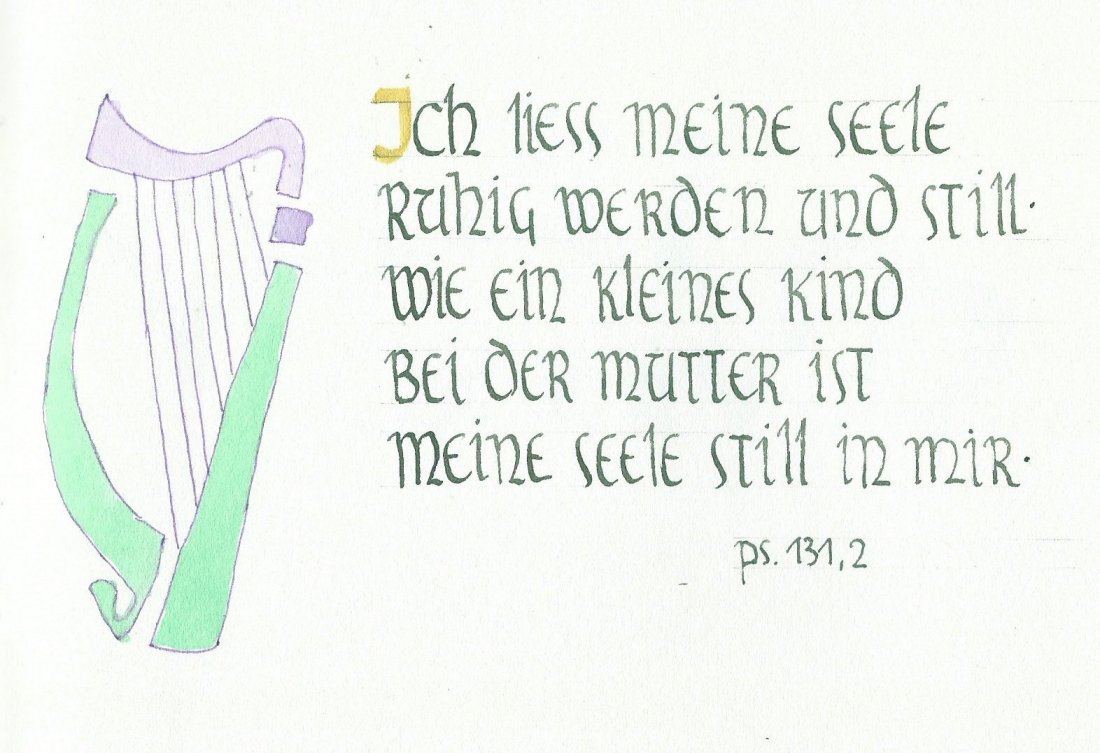 Ich liess meine seele
ruhig werden und still.
wie ein kleines kind
bei der mutter ist
meine seele still in mir.
ps. 131,2